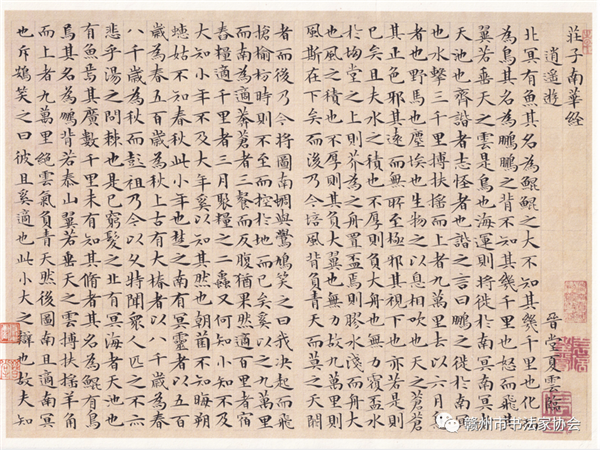 莊子南華経
逍遥遊
晉堂夏雲臨
北冥有魚其名為鯤鯤之大不知其幾千里也化
為鳥其名為鵬鵬之背不知其幾千里也怒而飛其
翼若垂天之雲是鳥也海運則将徙於南冥南冥
天池也齊諧者志怪者也諧之言曰鵬之徙於南
也水擊三千里摶扶摇而上者九萬里去以六月
者也野馬也塵埃也生物之以息相吹也天之蒼蒼
其正色邪其遠而無所至極邪其視下也亦若是則
已矣且夫水之積也不厚則負大舟也無力覆盃水
於坳堂之上則芥為之舟置盃焉則膠水淺而舟
風之積也不厚則其負大翼也無力故九萬里則
風斯在下矣而後乃今培風背負青天而莫之夭閼
者而後乃今将圖南蜩與鷽鳩笑之曰我决起而飛
搶榆枋時則不至而控於地而已矣奚以之九萬里
而南為適莽蒼者三餐而反腹猶果然適百里者宿
舂糧適千里者三月聚糧之二蟲又何知小知不及
大知小年不及大年奚以知其然也朝菌不知晦朔
蟪蛄不知春秋此小年也楚之南有冥靈者以五百
歲為春五百歲為秋上古有大椿者以八千歲為春
八千歲為秋而彭祖乃今以久特聞衆人匹之不亦
悲乎湯之問棘也是已窮髮之北有冥海者天池也
有魚焉其廣數千里未有知其脩者其名為鯤有鳥
焉其名為鵬背若泰山翼若垂天之雲摶扶摇羊角
而上者九萬里絶雲氣負青天然後圖南且適南冥
也斥鴳笑之曰彼且奚適也此小大之辯也故夫知
赣州市书法家协会